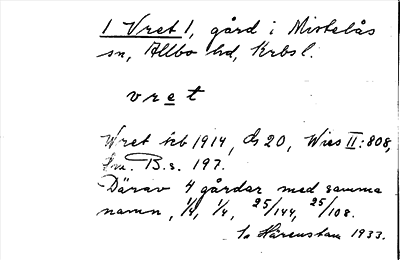 1 Vret 1, gård i Mistelås
sn, Allbo hd, Krbs l.
vret
Wret jrb 1914, ds 20, Wies II:808,
Lm. B.s. 197.
Därav 4 gårdar med samma
namn, 1/4, 1/4, 25/144, 25/108.
Härenstam 1933.